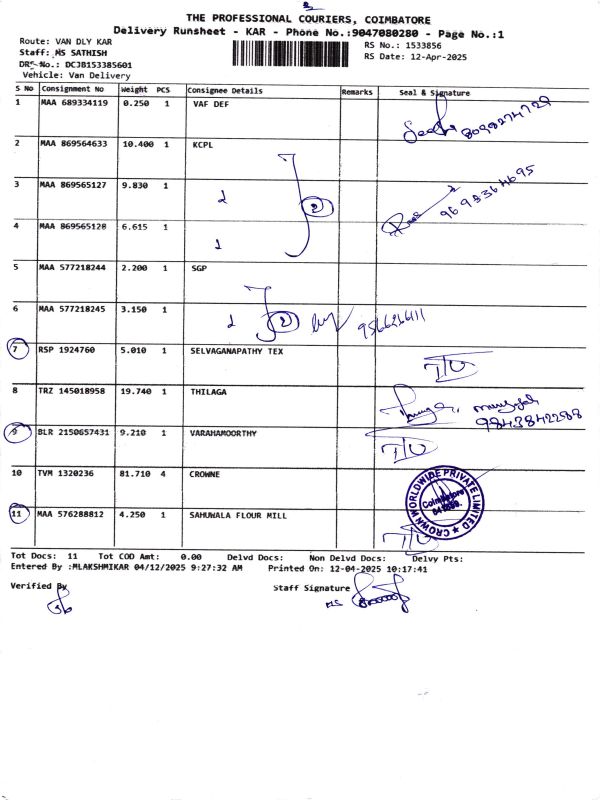 THE PROFESSIONAL COURIERS, COIMBATORE
Delivery Runsheet - KAR - Phone No.:9047080280 - Page No.:1
Route: VAN DLY KAR
RS No.: 1533856
Staff: MS SATHISH
RS Date: 12-Apr-2025
DRS No.: DCJB153385601
Vehicle: Van Delivery
S No Consignment No Weight PCS Consignee Details Remarks Seal & Signature
1 MAA 689334119 0.250 1 VAF DEF
8098274729
2 MAA 869564633 10.400 1 KCPL
3 MAA 869565127 9.830 1
9698364695
4 MAA 869565128 6.615 1
5 MAA 577218244 2.200 1 SGP
6 MAA 577218245 3.150 1
9566266111
7 RSP 1924760 5.010 1 SELVAGANAPATHY TEX
8 TRZ 145018958 19.740 1 THILAGA
9843842288
9 BLR 2150657431 9.210 1 VARAHAMOORTHY
10 TVM 1320236 81.710 4 CROWNE
CROWN WORLDWIDE PRIVATE LIMITED
Coimbatore
11 MAA 576288812 4.250 1 SAHUWALA FLOUR MILL
Tot Docs: 11 Tot COD Amt: 0.00 Delvd Docs: Non Delvd Docs: Delvy Pts:
Entered By :MLAKSHMIKAR 04/12/2025 9:27:32 AM Printed On: 12-04-2025 10:17:41
Verified By
Staff Signature
MS